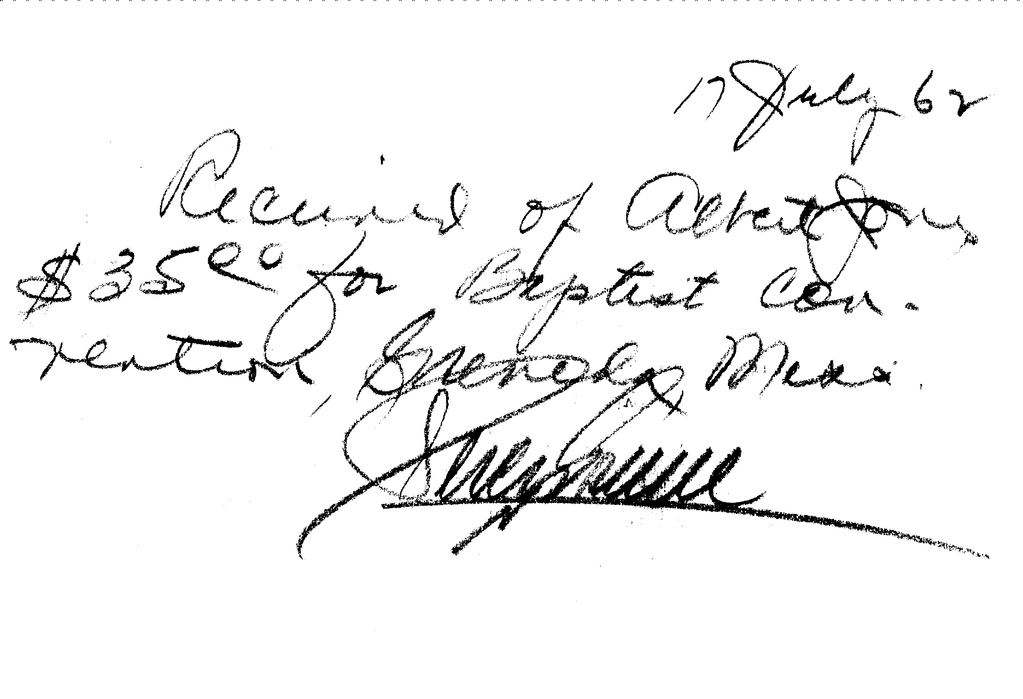 17 July 62
Received of Albert Jones
$35.00 for Baptist Con-
vention, Grenada, Miss.